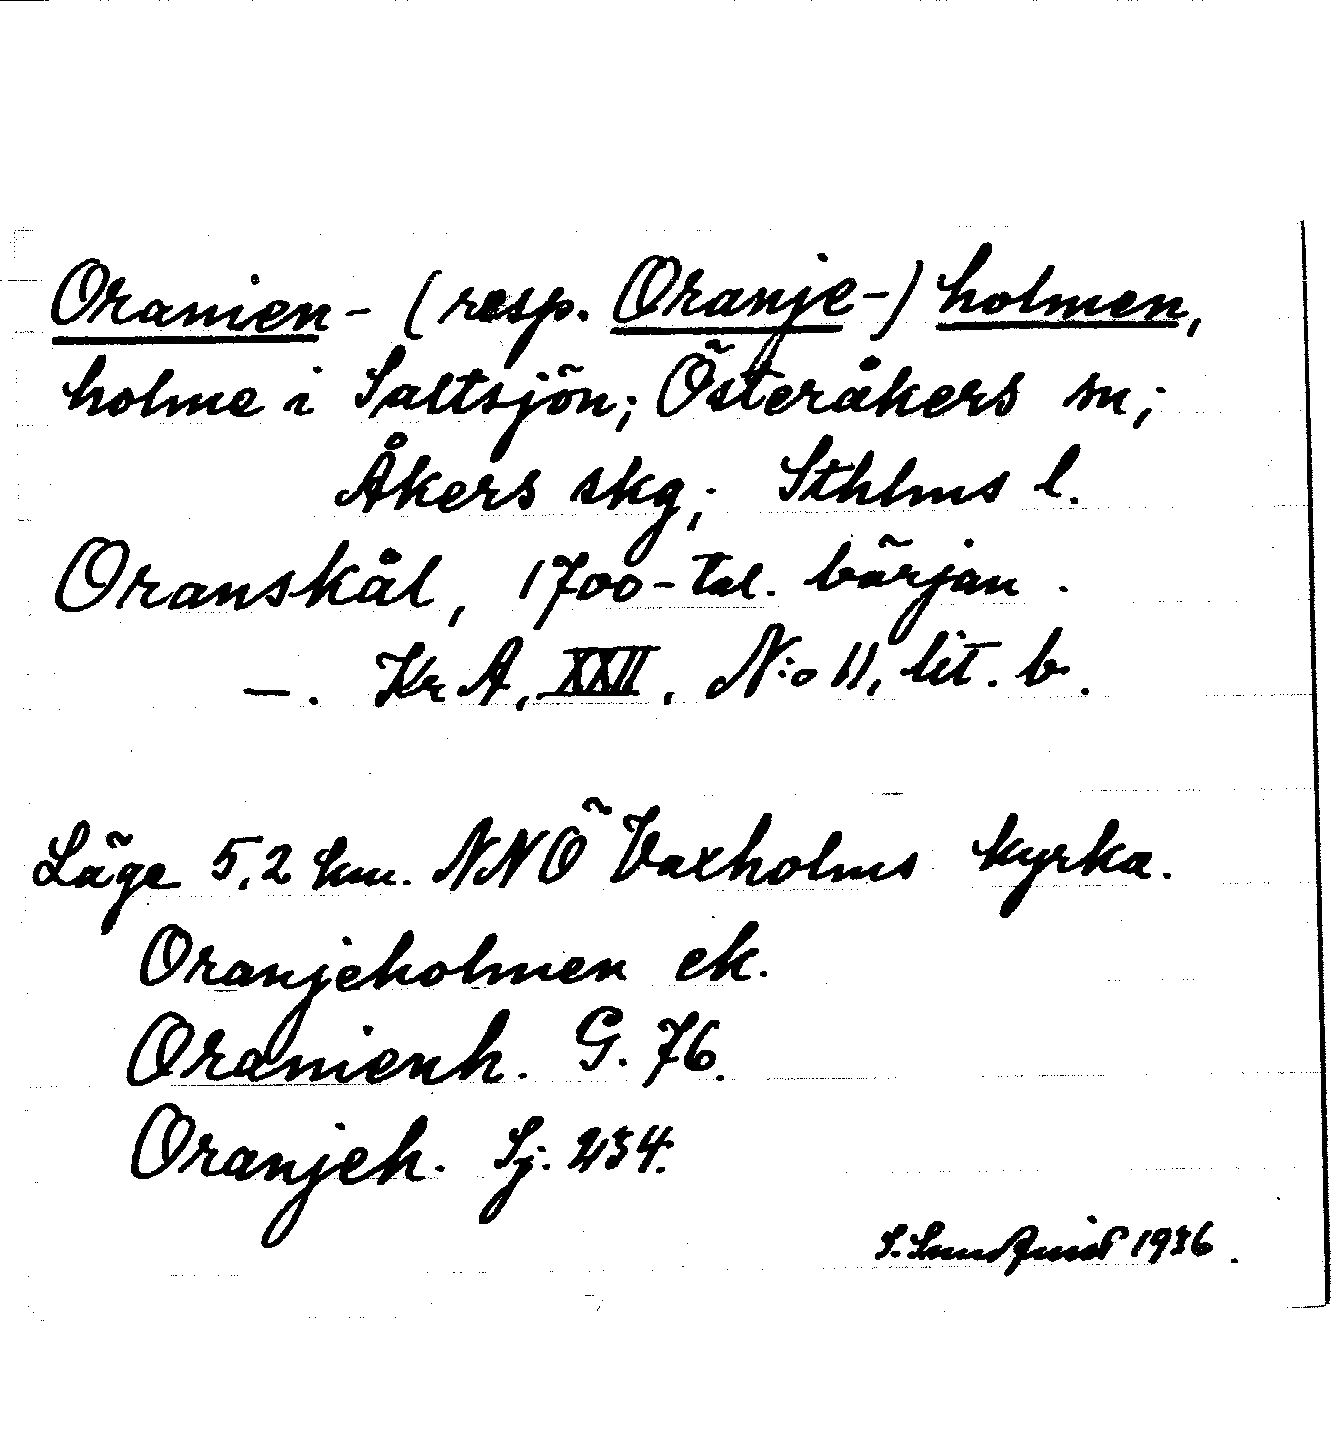 Oranien- (resp. Oranje-) holmen,
holme i Saltsjön; Österåkers sn;
Åkers skg; Sthlms l.
Oranskål, 1700-tal. början.
—. Kr A, XXII. N:o 11, lit. b.
Läge 5,2 km. NNÖ Vaxholms kyrka.
Oranjeholmen ek.
Oranienh. G. 76.
Oranjeh. Sj. 234.
S. Sundquist 1936.